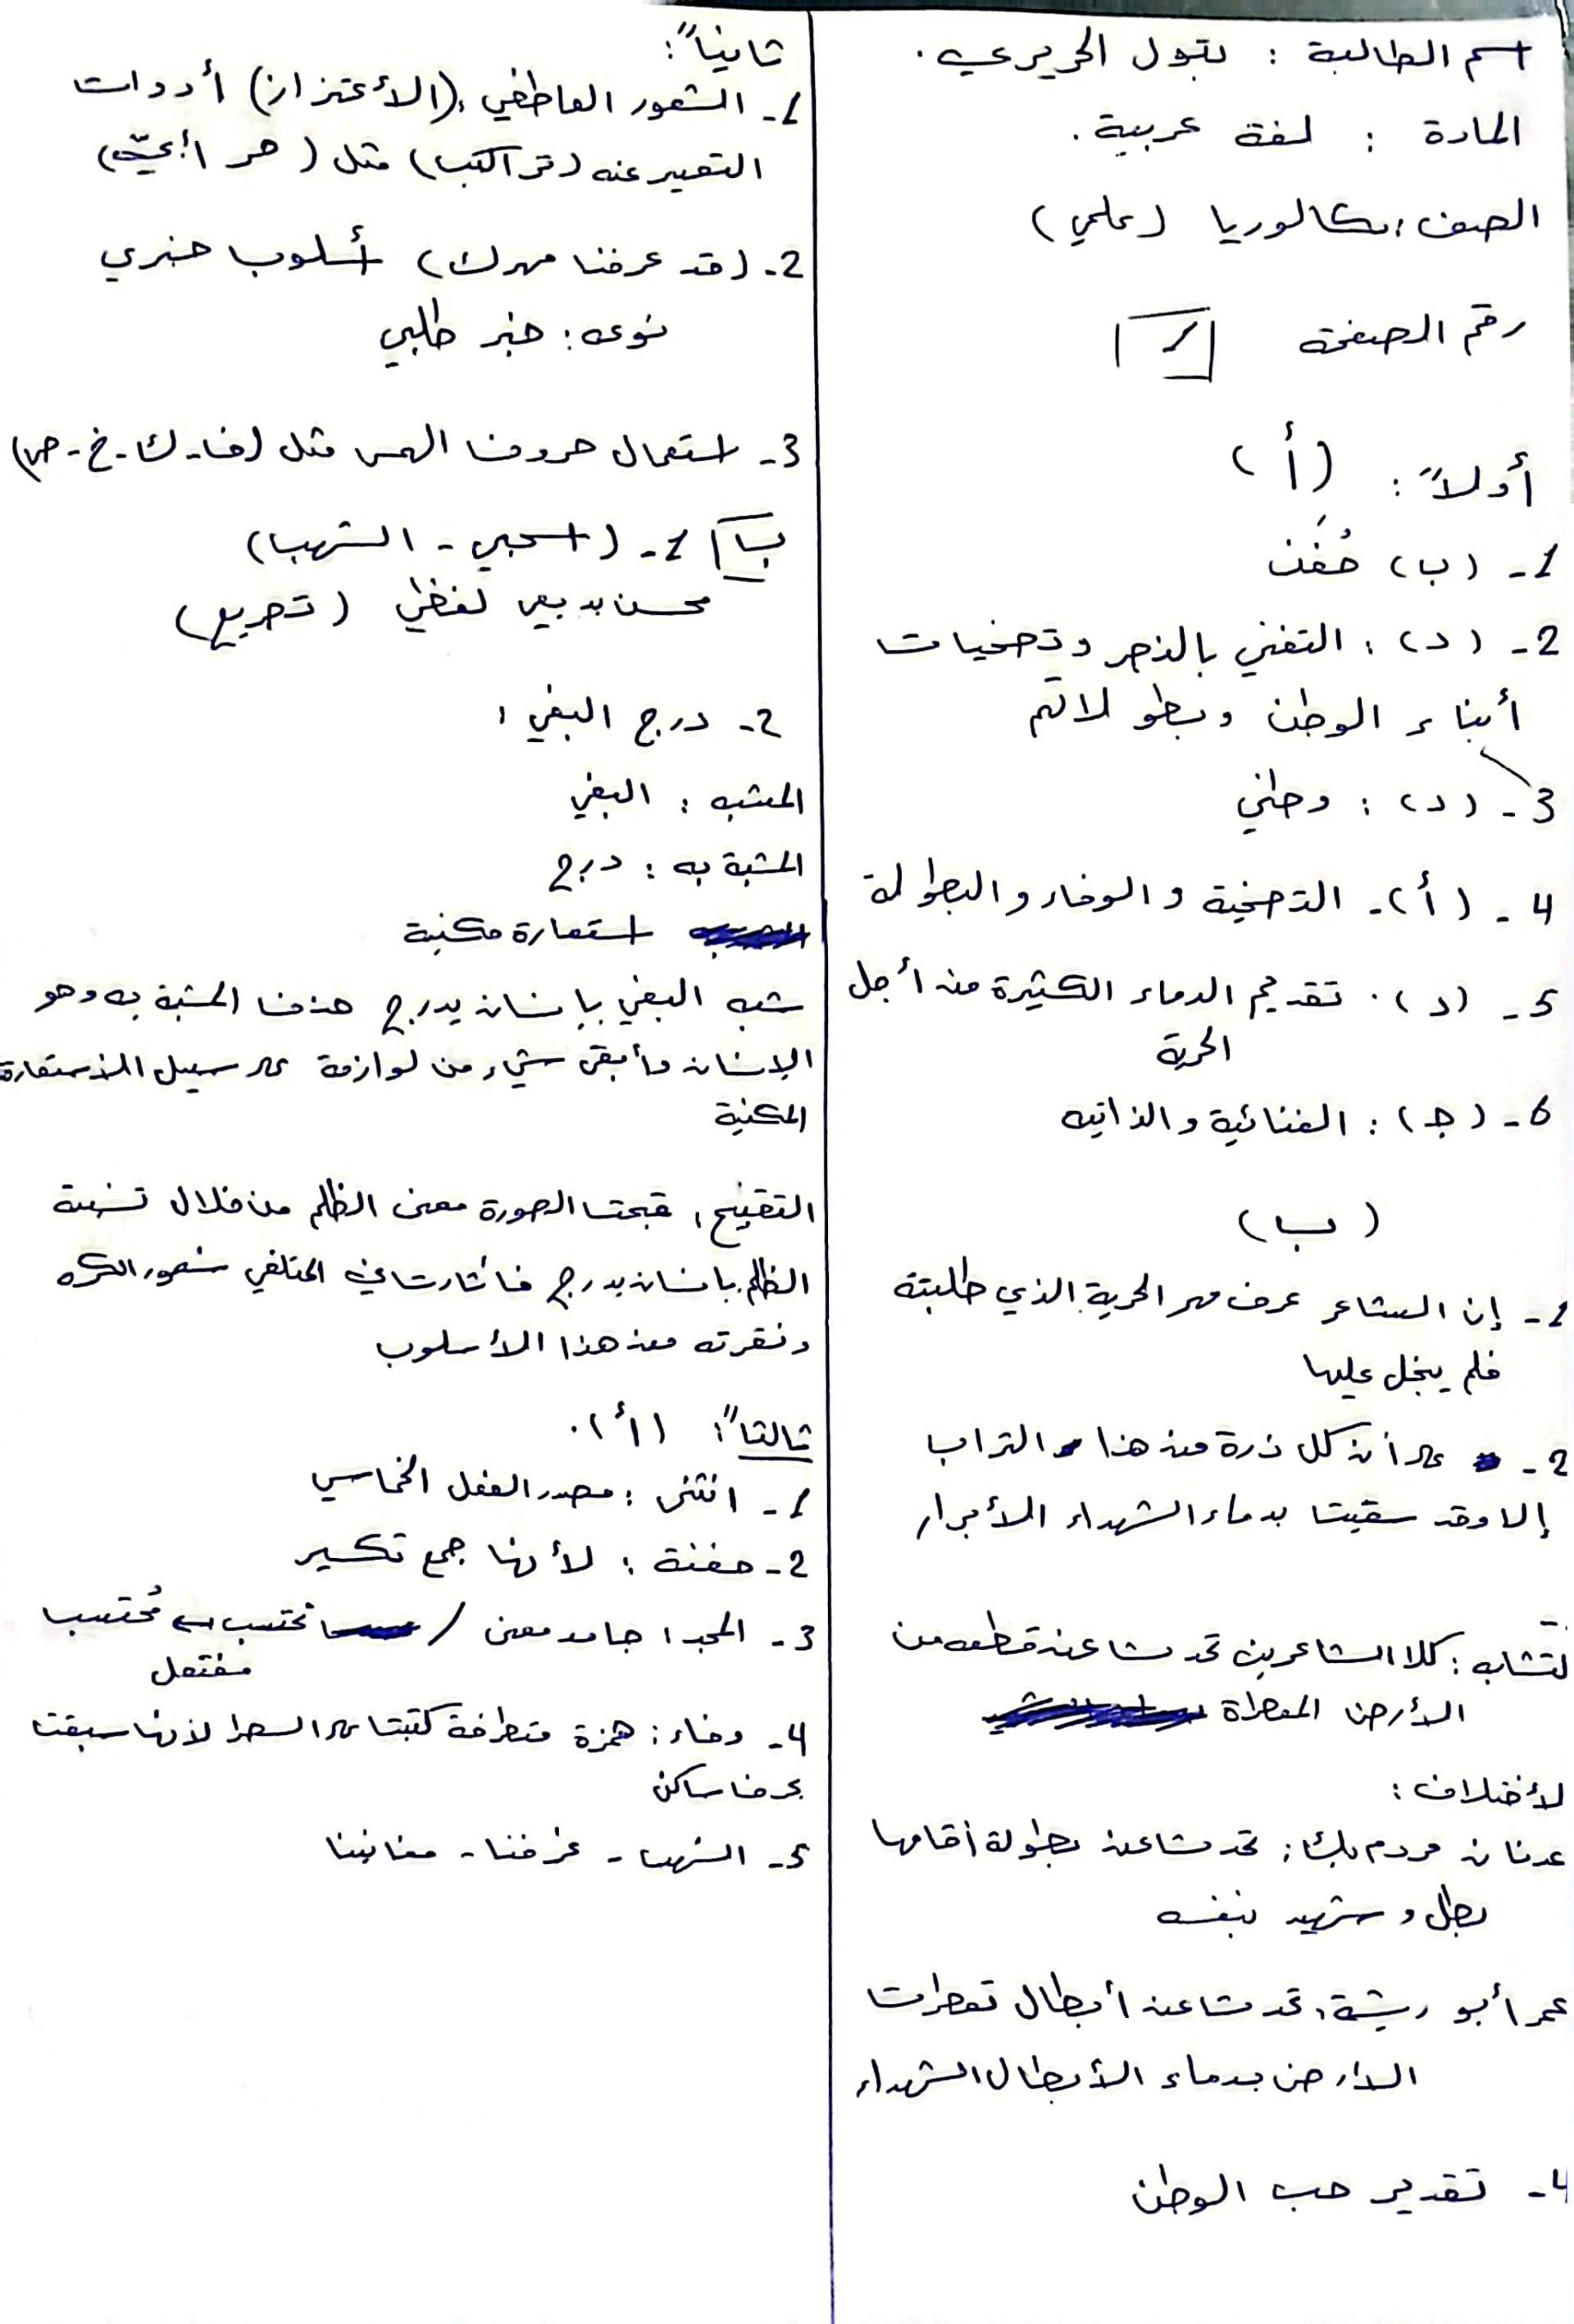 اسم الطالبة : بتول الحريري .
المادة : لغة عربية .
الصف : بكالوريا (علمي)
رقم الصفحة 1
أولاً : (أ)
1- (ب) حُفَن
2- (د) : التغني بالنصر وتضحيات
أبناء الوطن وبطولاتهم
3- (د) : وطني
4- (أ) - التضحية والوفاء والبطولة
5- (د) . تقديم الدماء الكثيرة من أجل
الحرية
6- (ج) : الغنائية والذاتيه
(ب)
1- إن الشاعر عرف مهر الحرية الذي طلبته
فلم يبخل عليها
2- على أن كل ذرة من هذا التراب
إلا وقد سقيت بدماء الشهداء الأبرار
لتشابه : كلا الشاعرين تحدث عن قطعه من
الأرض المعطرة
لأختلاف :
عدنان مردم بك : تحدث عن بطولة أقامها
بطل وشهيد بنفسه
عمر أبو ريشة : تحدث عن أبطال تعطرت
الأرض بدماء الأبطال الشهداء
4- تقدير حب الوطن
ثانياً :
1- الشعور العاطفي : (الأعتزاز) أدوات
التعبير عنه (تراكيب) مثل (حر أبيّ)
2- (قد عرفنا مهرك) أسلوب خبري
نوعه : خبر طلبي
3- استعمال حروف الهمس مثل (ف - ك - خ - ص)
ب 1- (اسحبي - الشهب)
محسن بديعي لفظي (تصريع)
2- درج البغي :
المشبه : البغي
المشبة به : درج
استعارة مكنية
شبه البغي بإنسان يدرج حذف المشبة به وهو
الإنسان وأبقى شيء من لوازمة على سبيل الاستعارة
المكنية
التقبيح : قبحت الصورة معنى الظلم من خلال تشبية
الظلم بإنسان يدرج فأثارت في المتلقي شعور الكره
ونفرته من هذا الأسلوب
ثالثاً : (أ) .
1- انتنى : مصدر الفعل الخماسي
2- حفنة : لأنها جمع تكسير
3- المجد : جامد معنى / تحتسب ← مُحتسب
مفتعل
4- وفاء : همزة متطرفة كتبت على السطر لأنها سبقت
بحرف ساكن
5- الشهب - عرفنا - مغانينا